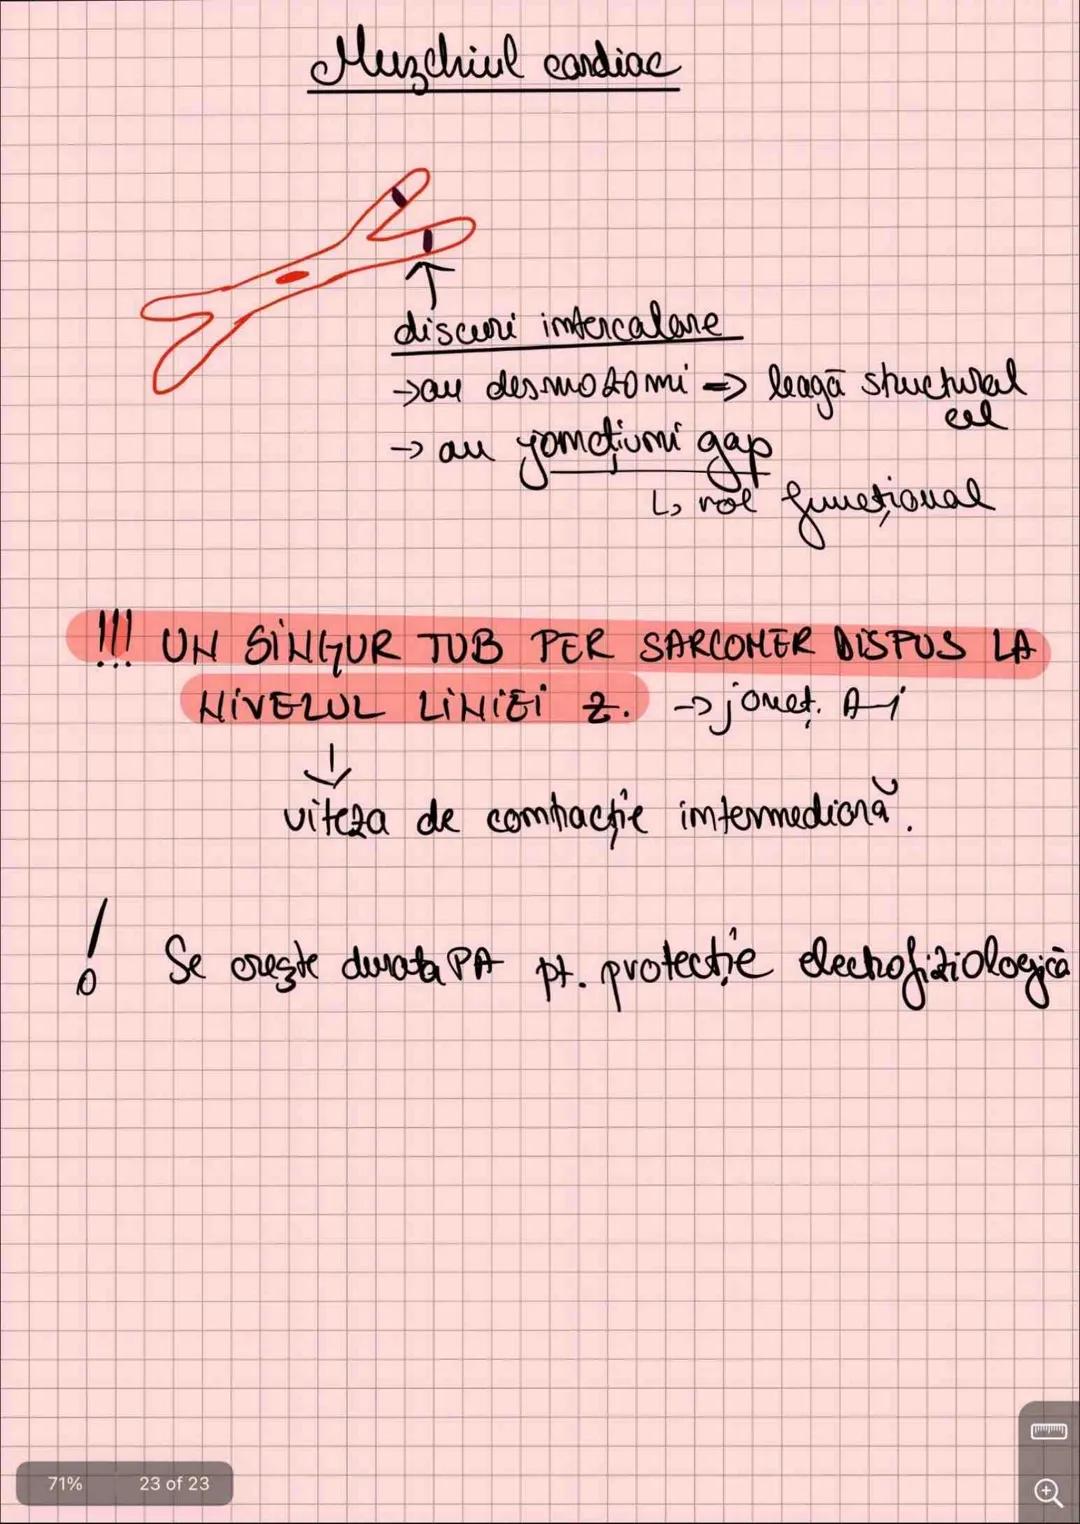 Muzchiul cardiac
discuri intercalare
→ au desmozomi => leagă structural
cel
→ au joncțiuni gap
↳ rol funcțional
!!! UN SINGUR TUB PER SARCOMER DISPUS LA
NIVELUL LINIEI Z. → jonct. A-i
↓
viteza de contracție intermediară.
! Se crește durata PA pt. protecție electrofiziologică
71% 23 of 23